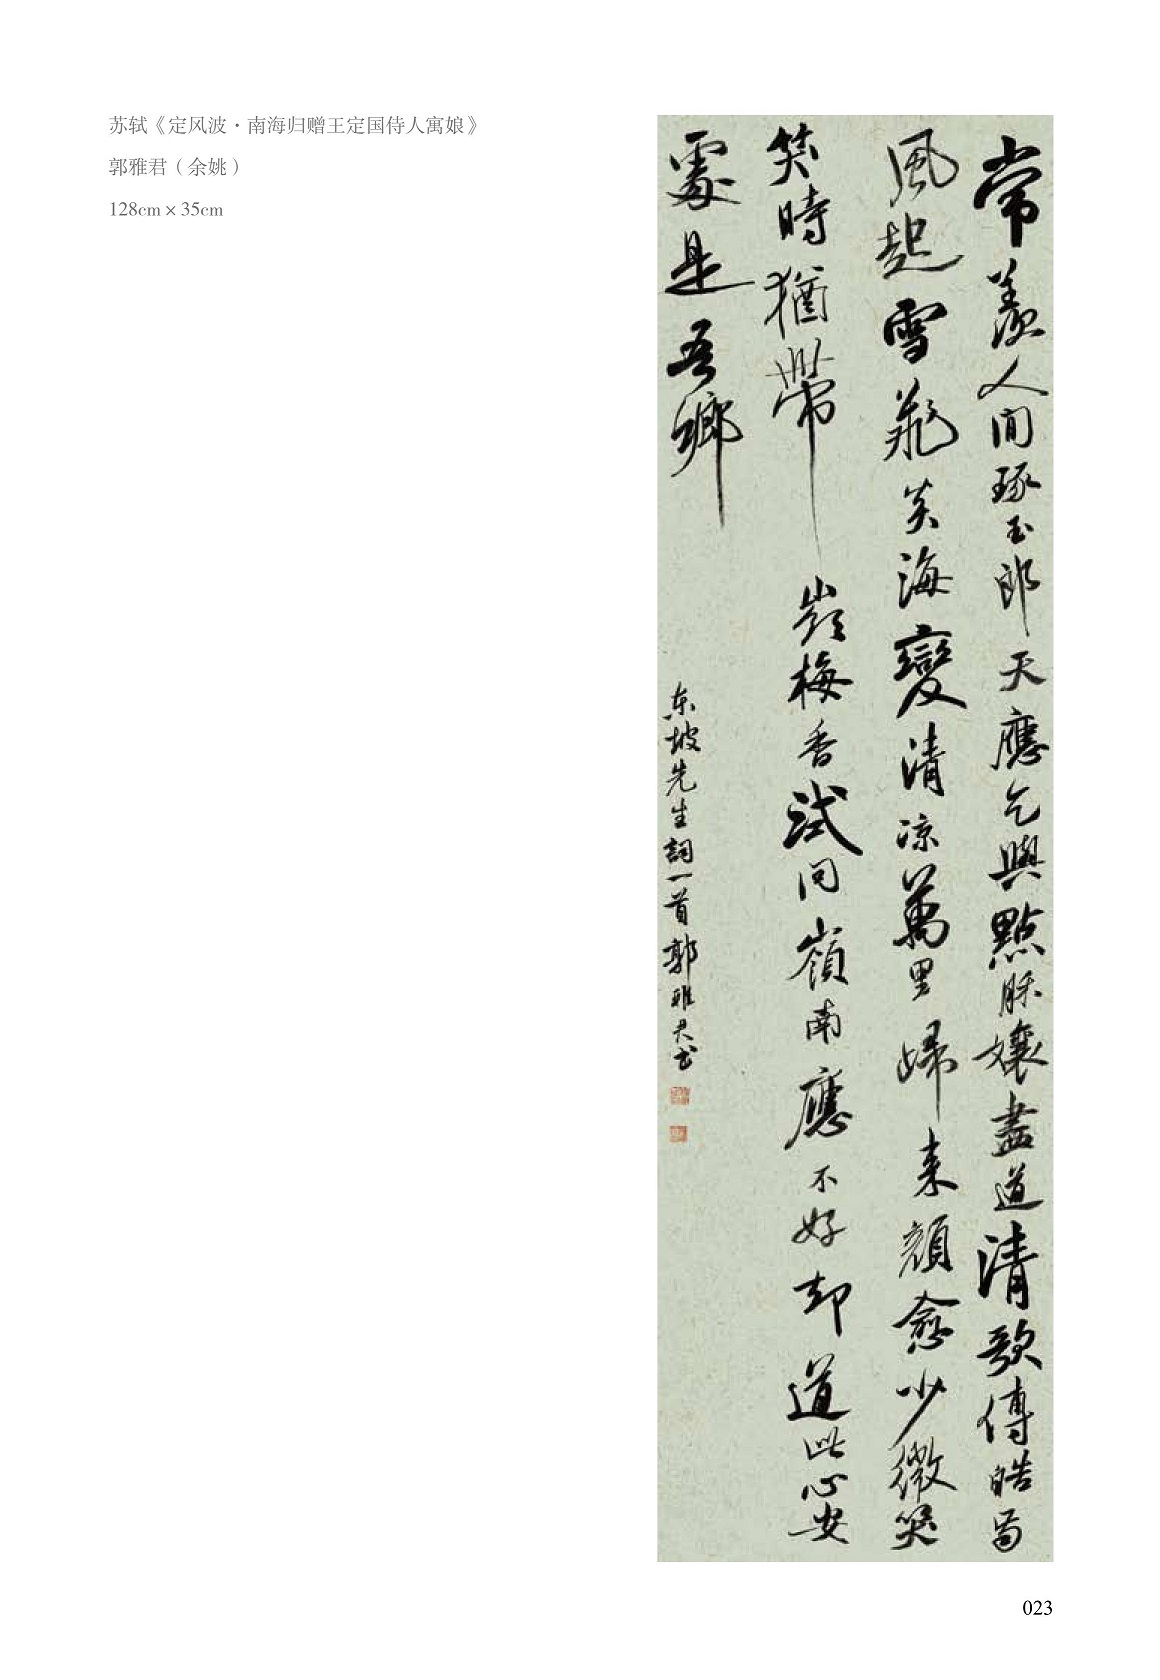 苏轼《定风波·南海归赠王定国侍人寓娘》
郭雅君（余姚）
128cm × 35cm
常羨人間琢玉郎天應乞與點酥孃盡道清歌傳皓齒
風起雪飛炎海變清凉萬里歸来顔愈少微笑
笑時猶帶嶺梅香試問嶺南應不好却道此心安
處是吾鄉
东坡先生詞一首郭雅君书
023